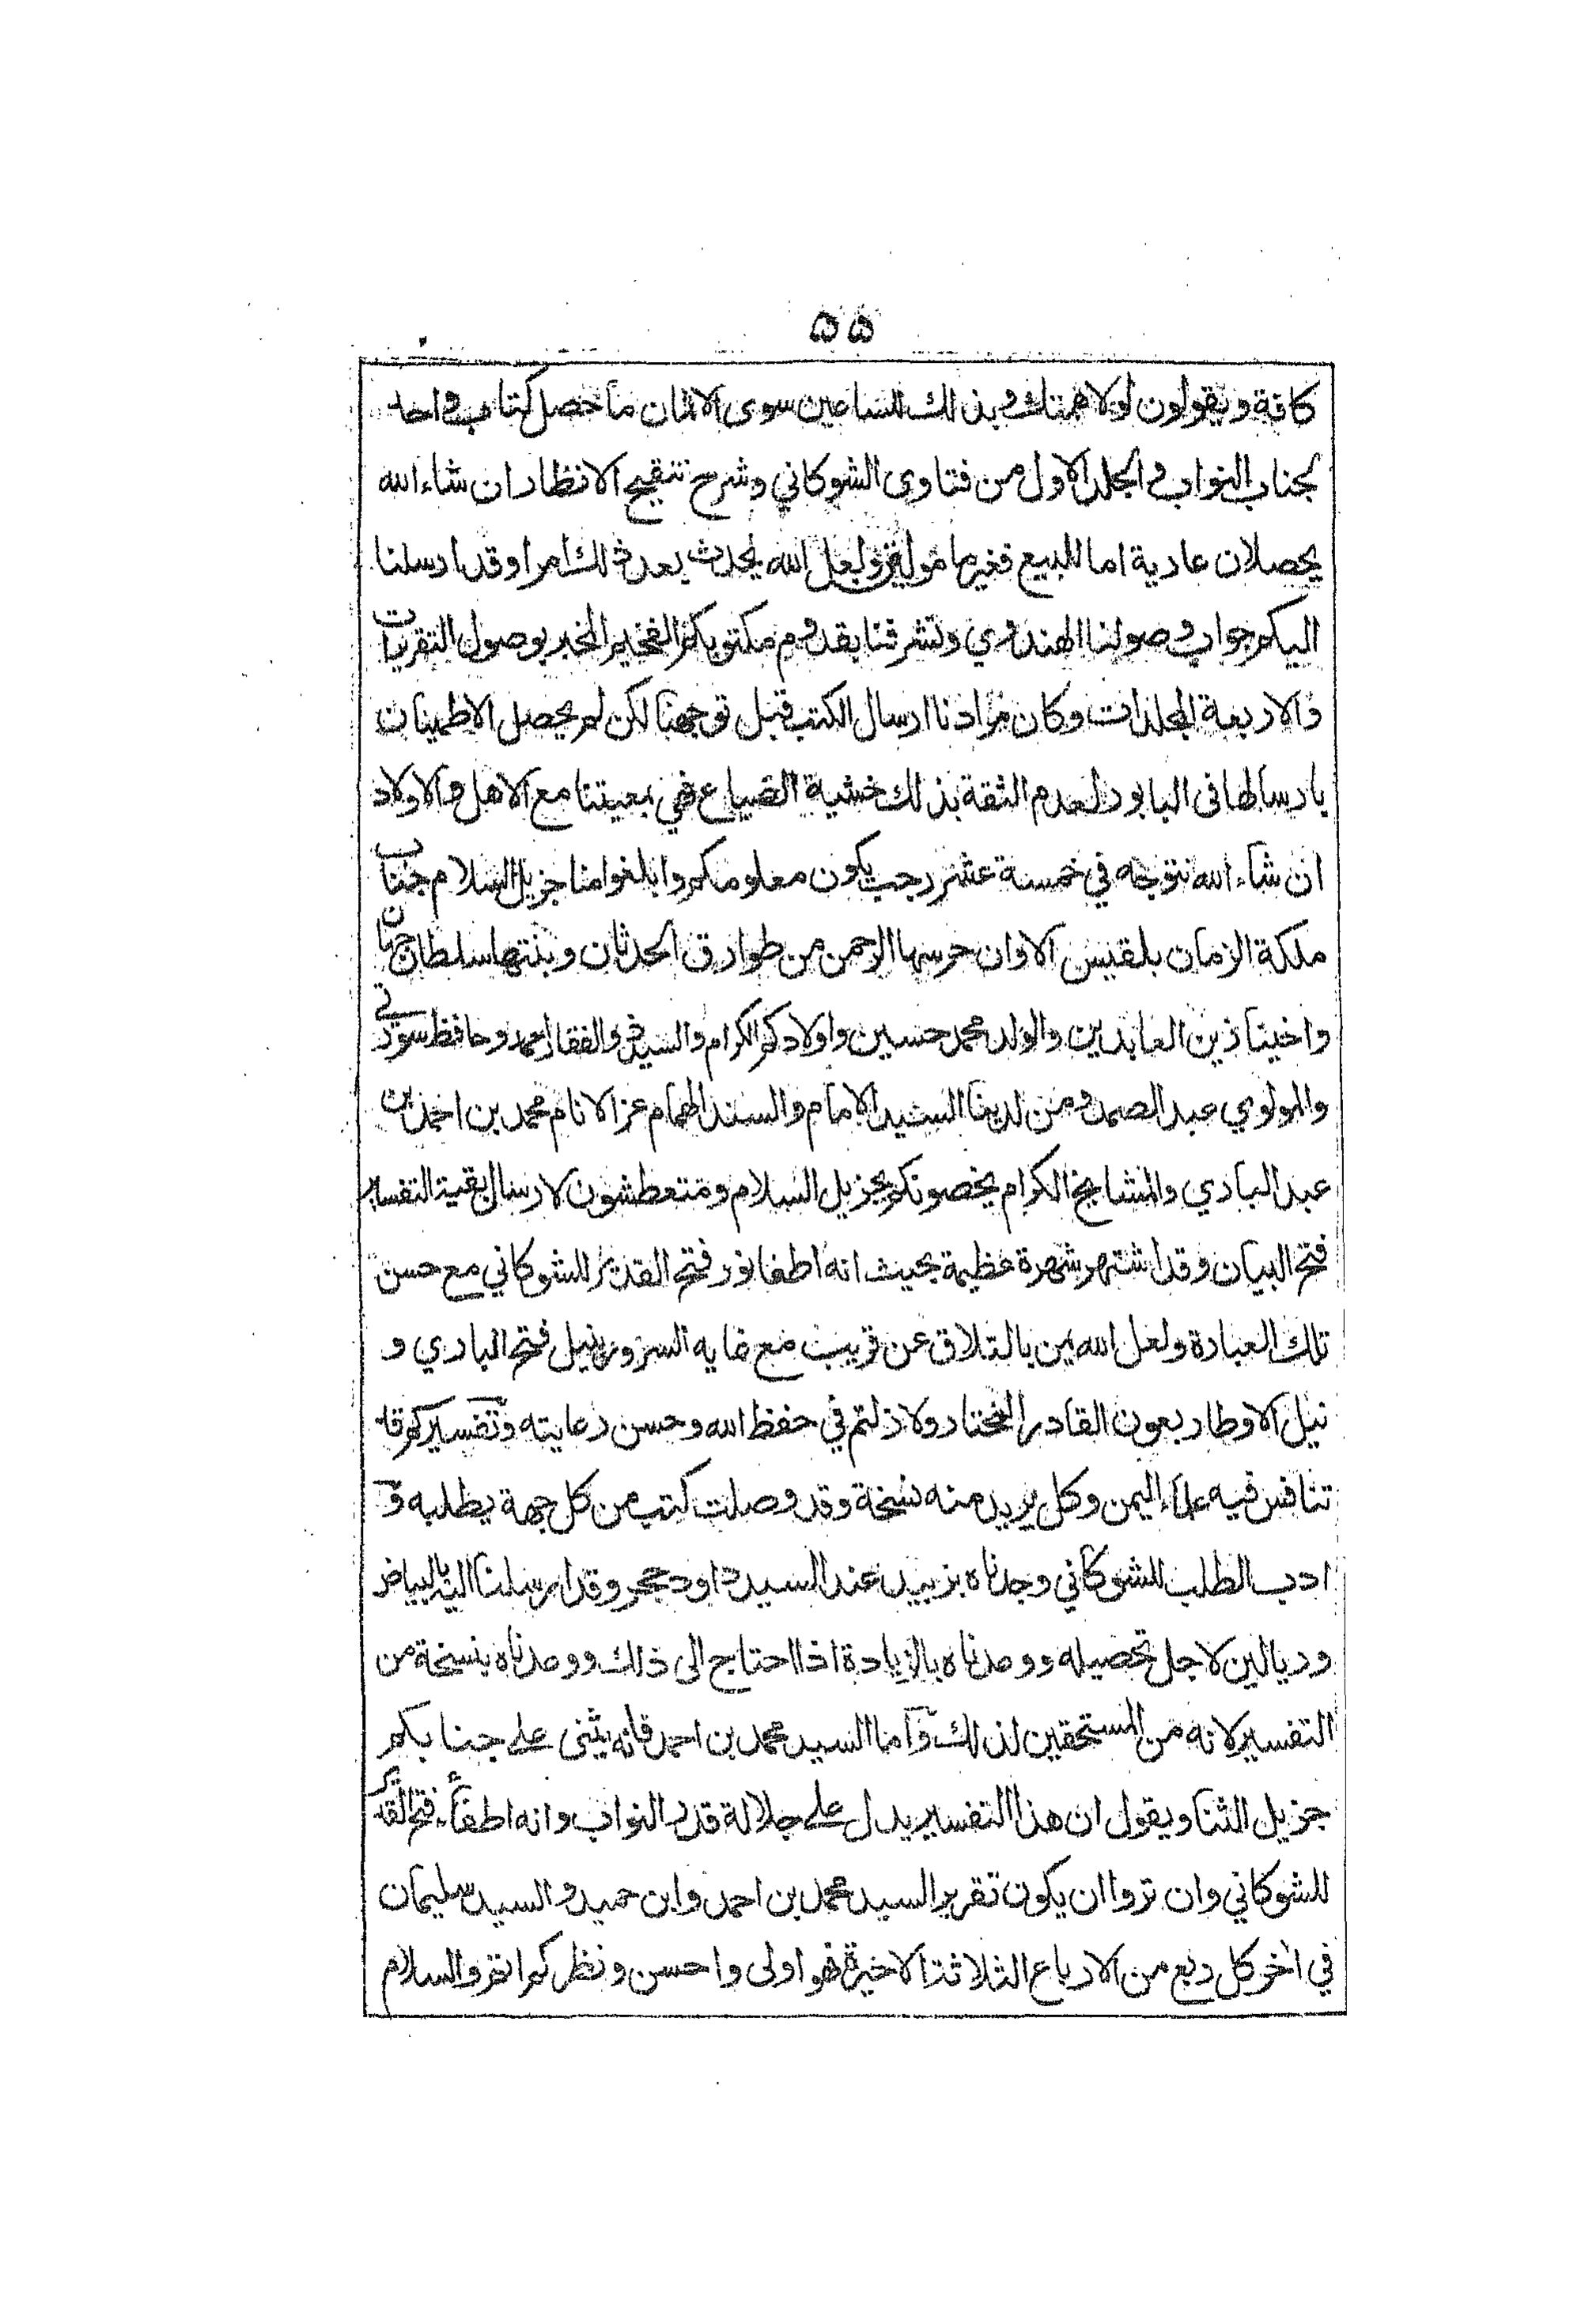 ۵۵
كافة ويقولون لولا همتك وبذلك للساعين سوى الاثمان ما حصل كتاب واحد
لجناب النواب و المجلد الاول من فتاوى الشوكاني وشرح تنقيح الانظار ان شاء الله
يحصلان عارية اما للبيع فغير مامول ولعل الله يحدث بعد ذلك امرا وقد ارسلنا
اليكم جواب وصولنا الهندوي وتشرفنا بقدوم مكتوبكم الفخيم المخبر بوصول التقريرات
والاربعة المجلدات وكان مرادنا ارسال الكتب قبل توجهنا لكن لم يحصل الاطمينان
بارسالها في البابور لعدم الثقة بذلك خشية الضياع فهي بمعيتنا مع الاهل والاولاد
ان شاء الله نتوجه في خمسة عشر رجب يكون معلومكم وابلغوا منا جزيل السلام جناب
ملكة الزمان بلقيس الاوان حرسها الرحمن من طوارق الحدثان وبنتها سلطان جهان
واخينا زين العابدين والولد محمد حسين واولادكم الكرام والسيد ذو الفقار احمد وحافظ سورتي
والمولوي عبد الصمد ومن لدينا السيد الامام والسند الهمام عز الانام محمد بن احمد بن
عبد الباري والمشايخ الكرام يخصونكم بجزيل السلام ومتعطشون لارسال بقية التفسير
فتح البيان وقد اشتهر شهرة عظيمة بحيث انه اطفا نور فتح القدير للشوكاني مع حسن
تلك العبارة ولعل الله يمن بالتلاق عن قريب مع غاية السرور بنيل فتح الباري و
نيل الاوطار بعون القادر المختار ولا زلتم في حفظ الله وحسن رعايته وتفسيركم قد
تنافس فيه علماء اليمن وكل يريد منه نسخة وقد وصلت كتب من كل جهة يطلبه و
ادب الطلب للشوكاني وجدناه بزبيد عند السيد داود حجر وقد ارسلنا اليه بالبياض
وريالين لاجل تحصيله ووعدناه بالزيادة اذا احتاج الى ذلك ووعدناه بنسخة من
التفسير لانه من المستحقين لذلك واما السيد محمد بن احمد فانه يثنى على جنابكم
جزيل الثنا ويقول ان هذا التفسير يدل على جلالة قدر النواب وانه اطفأ فتح القدير
للشوكاني وان تروا ان يكون تقرير السيد محمد بن احمد وابن حميد والسيد سليمان
في اخر كل ربع من الارباع الثلاثة الاخيرة فهو اولى واحسن ونظركم اتم والسلام